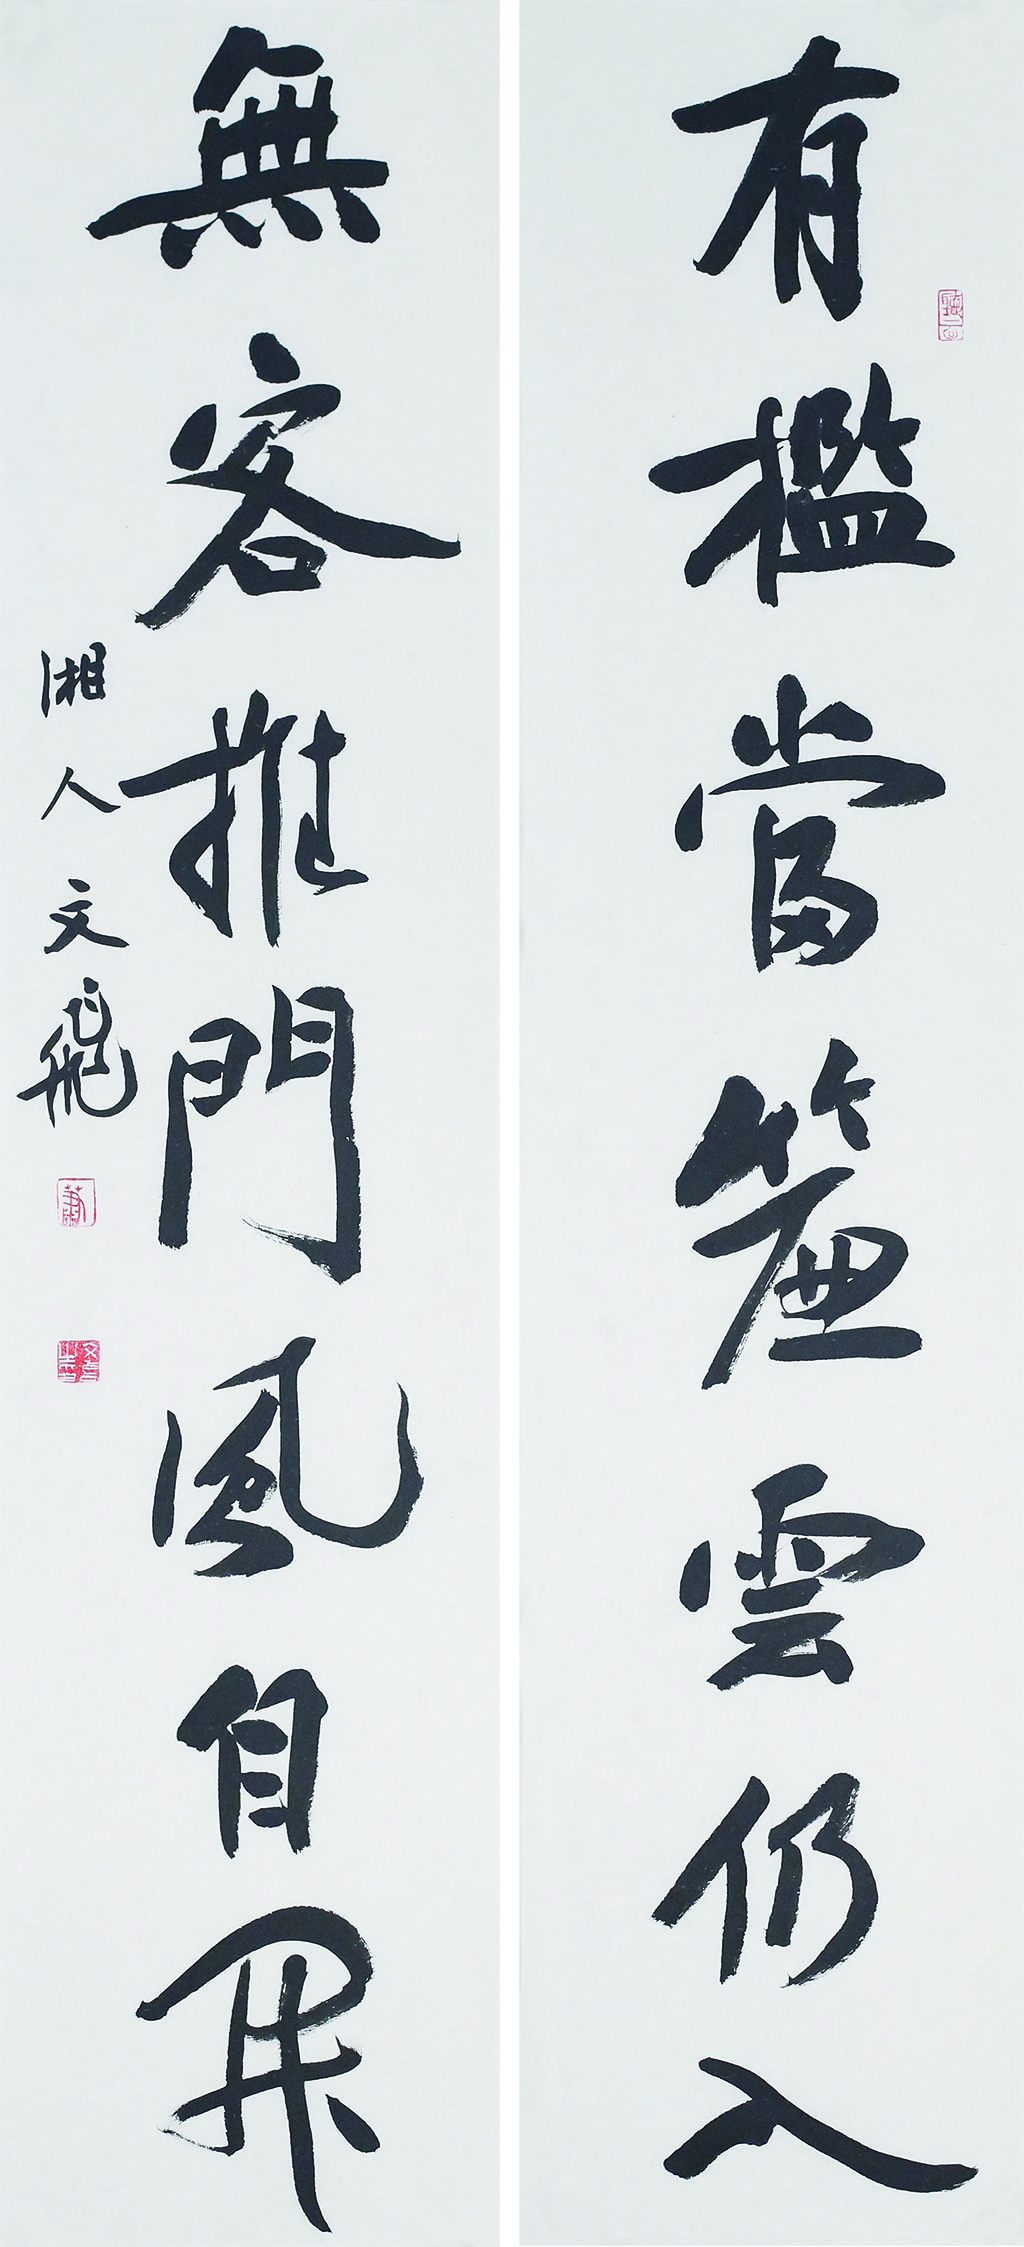 有檻當簾雲仍入
無客推門風自開
湘人文飛